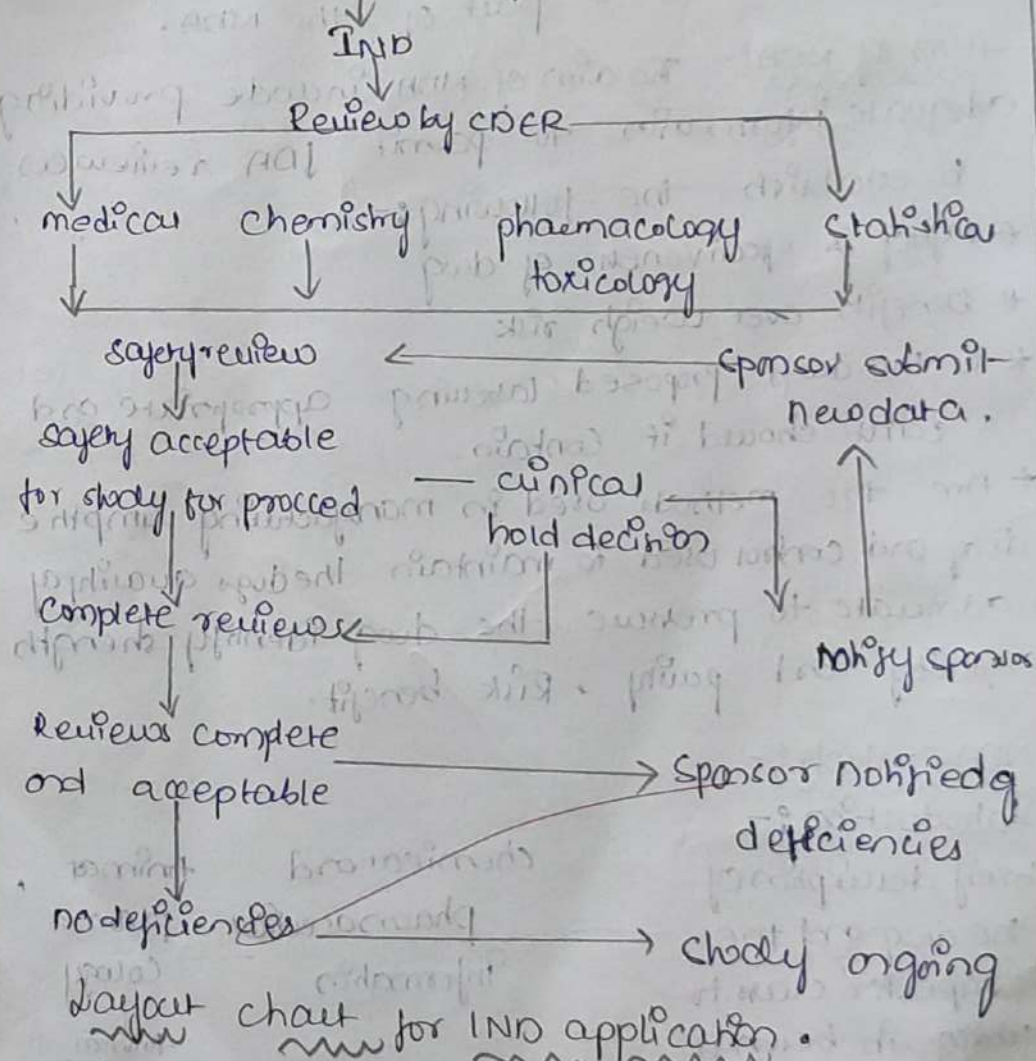 IND
Review by CDER
medical chemistry phaemacology Statistical
toxicology
safety review sponsor submit
new data.
safety acceptable
for study for procced clinical
hold decision
Complete reviews
notify sponsor
Reviews complete
and acceptable sponsor notified g
deficiencies
no deficiencies
study ongoing
Layout chart for IND application.